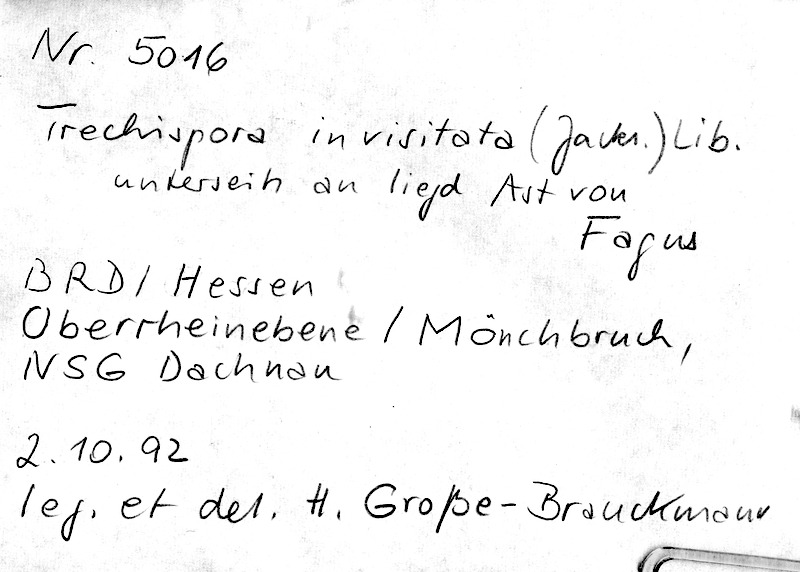 Nr. 5016
Trechispora invisitata (Jacks.) Lib.
unterseits an liegd Ast von
Fagus
BRD / Hessen
Oberrheinebene / Mönchbruch,
NSG Dachnau
2.10.92
leg. et det. H. Große-Brauckmann